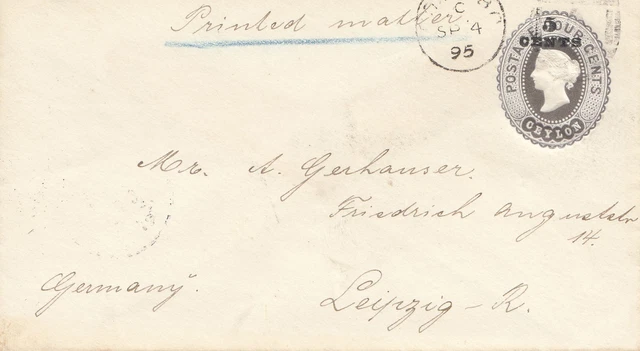 Printed matter
C
SP 4
95
5
CENTS
POSTAGE FOUR CENTS
CEYLON
Mr. A. Gerhauser.
Friedrich Auguststr
14.
Germany.
Leipzig - R.